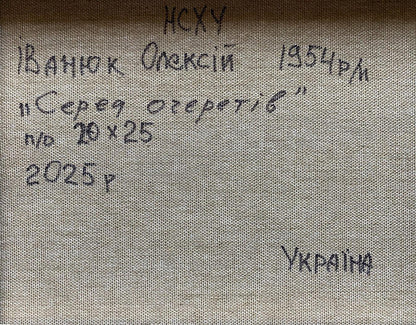 НСХУ
Іванюк Олексій 1954 р/н
„Серед очеретів"
п/о 20×25
2025 р
Україна